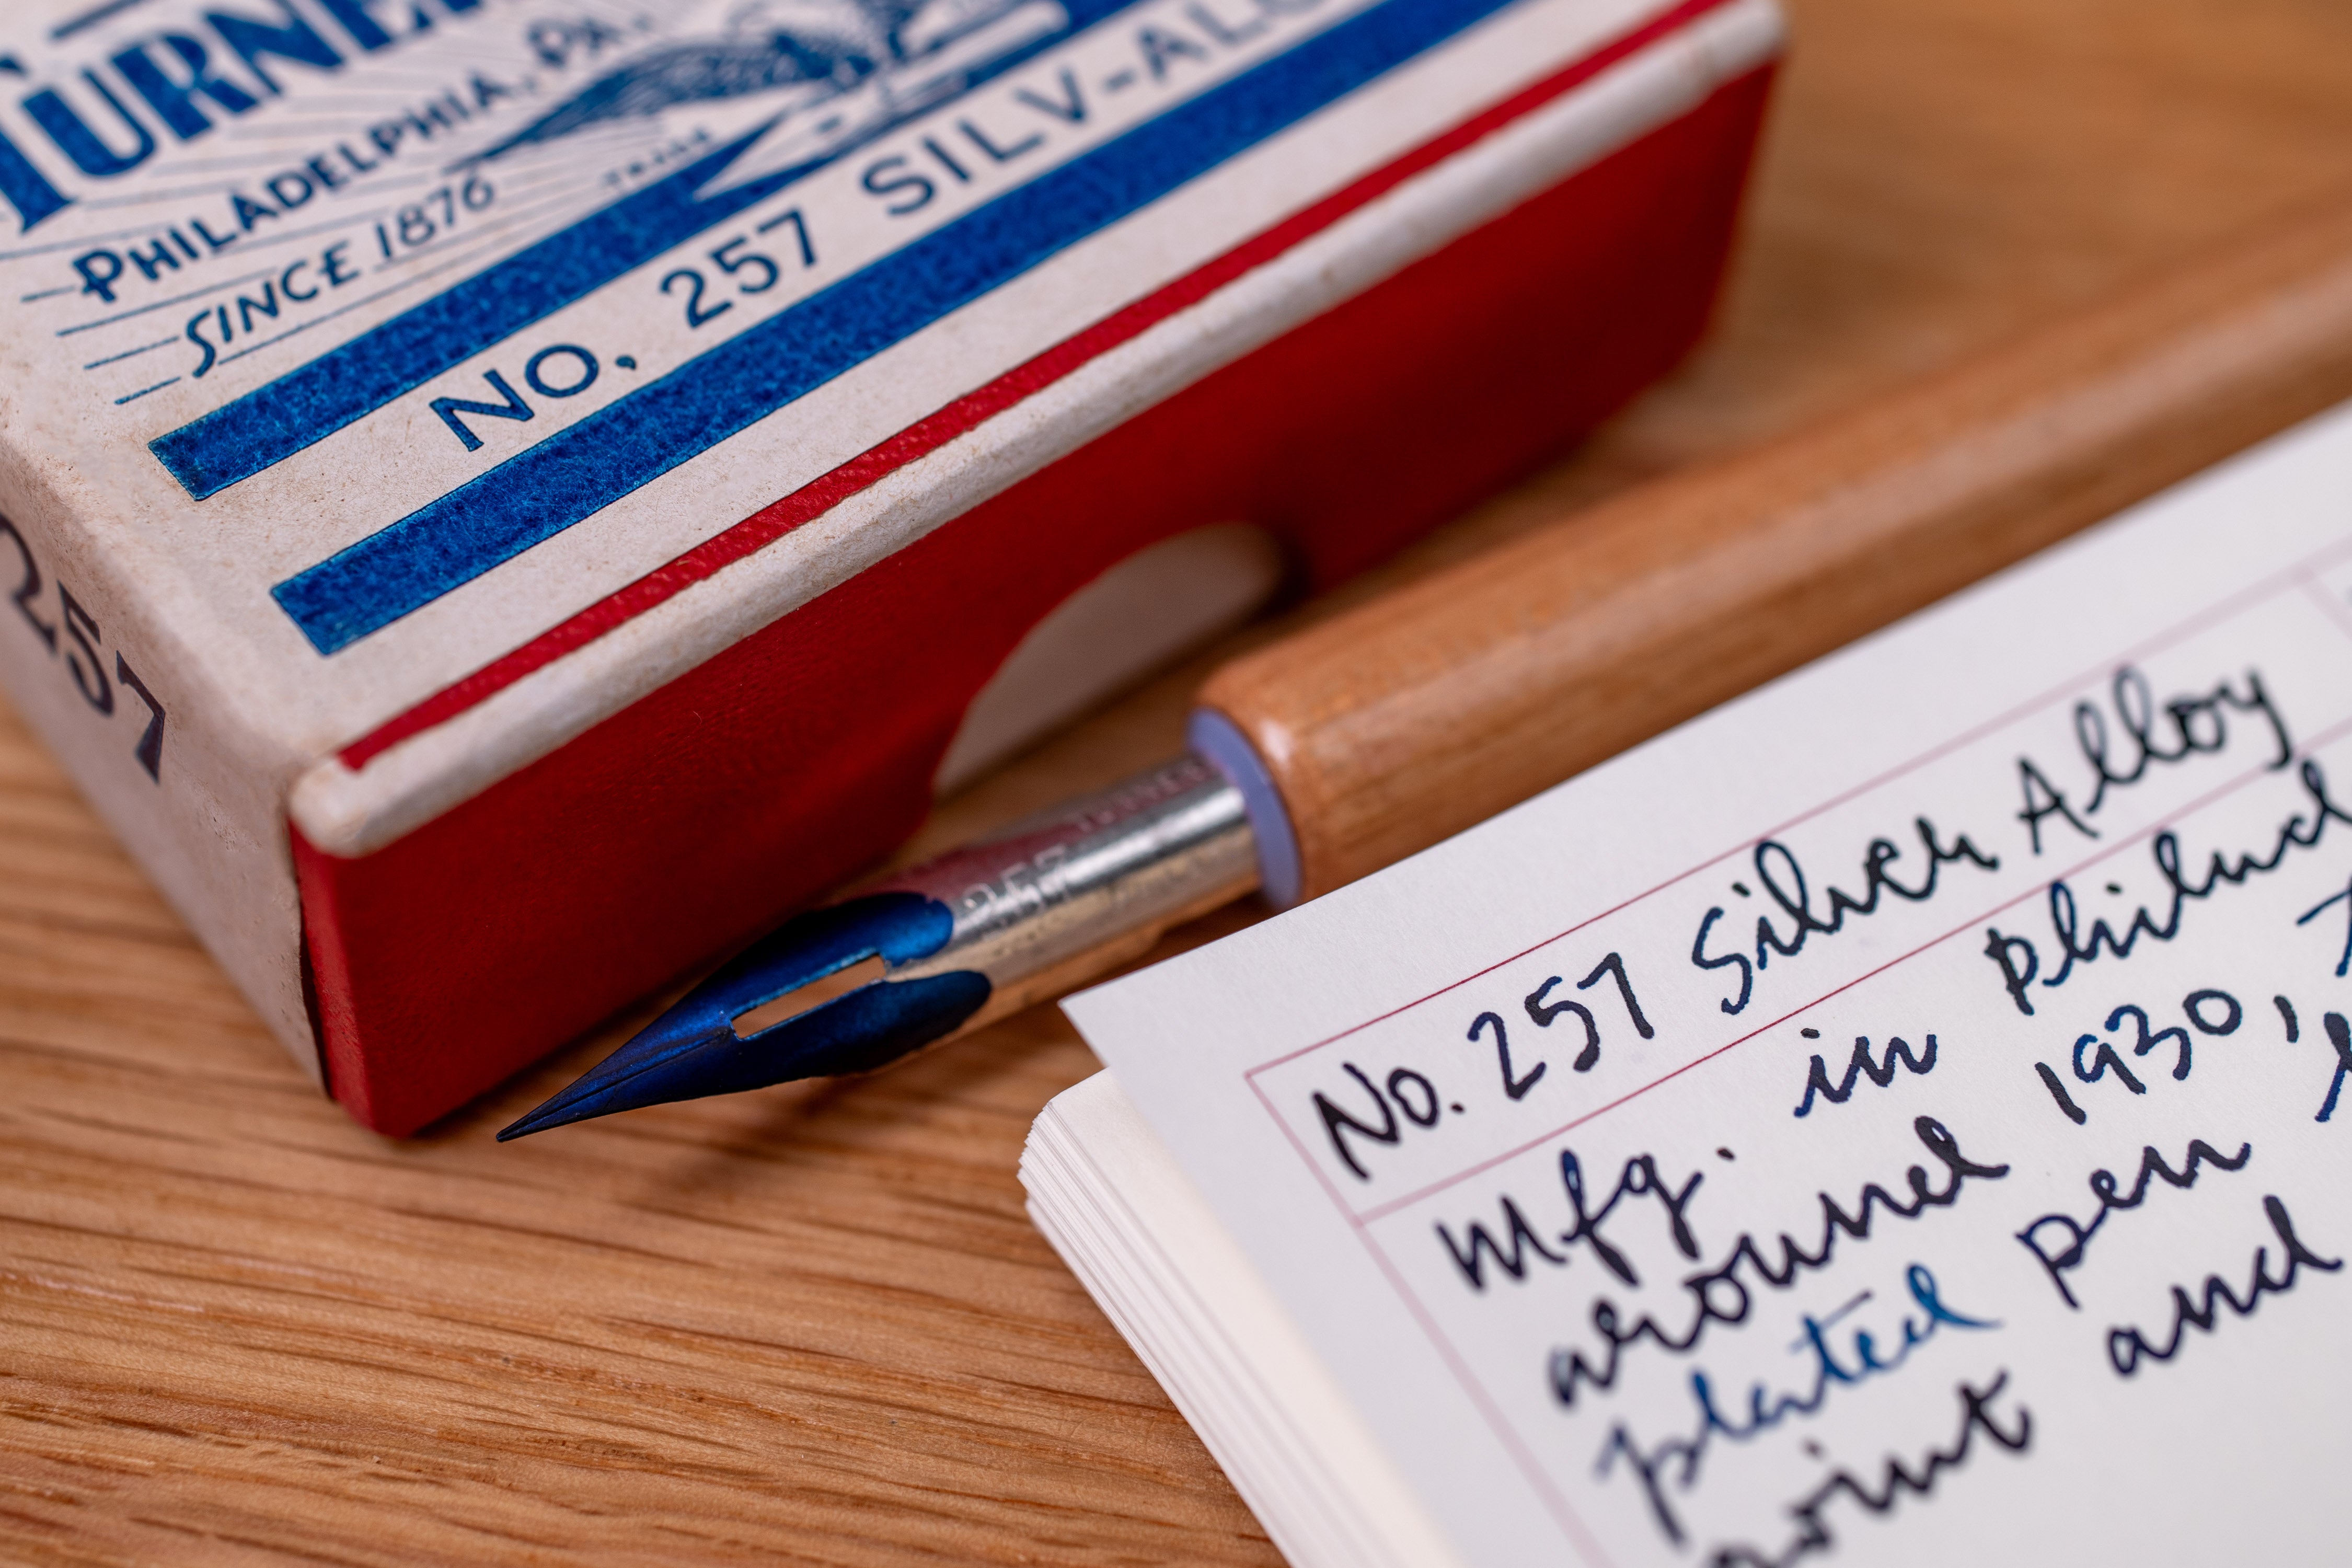 TURNER
PHILADELPHIA, PA.
SINCE 1876
TRADE
NO. 257 SILV-ALO
257
257
No. 257 Silver Alloy
Mfg. in Philad
around 1930,
plated pen
point and